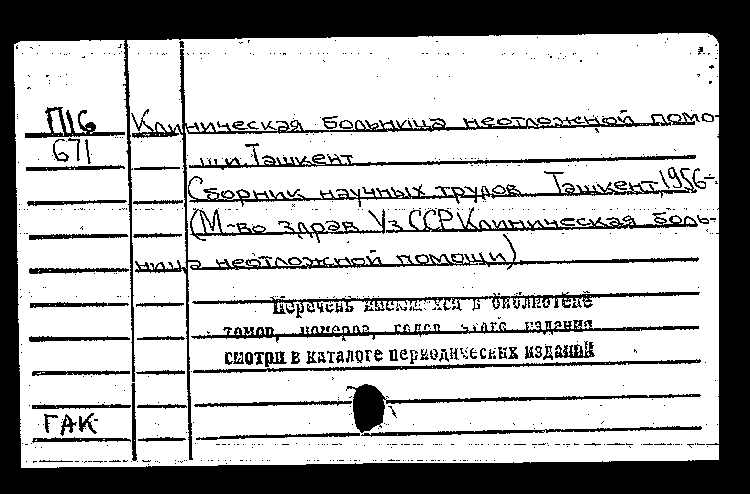 П16 Клиническая больница неотложной помо-
671 щи. Ташкент
Сборник научных трудов Ташкент, 1956-
(М-во здрав УзССР. Клиническая боль-
ница неотложной помощи).
Перечень имеющихся в библиотеке
томов, номеров, годов этого издания
смотри в каталоге периодических изданий
ГАК